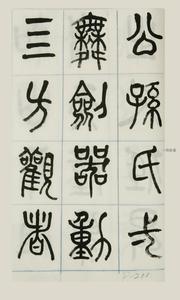 公孫氏弌
舞劍器動
三方觀者